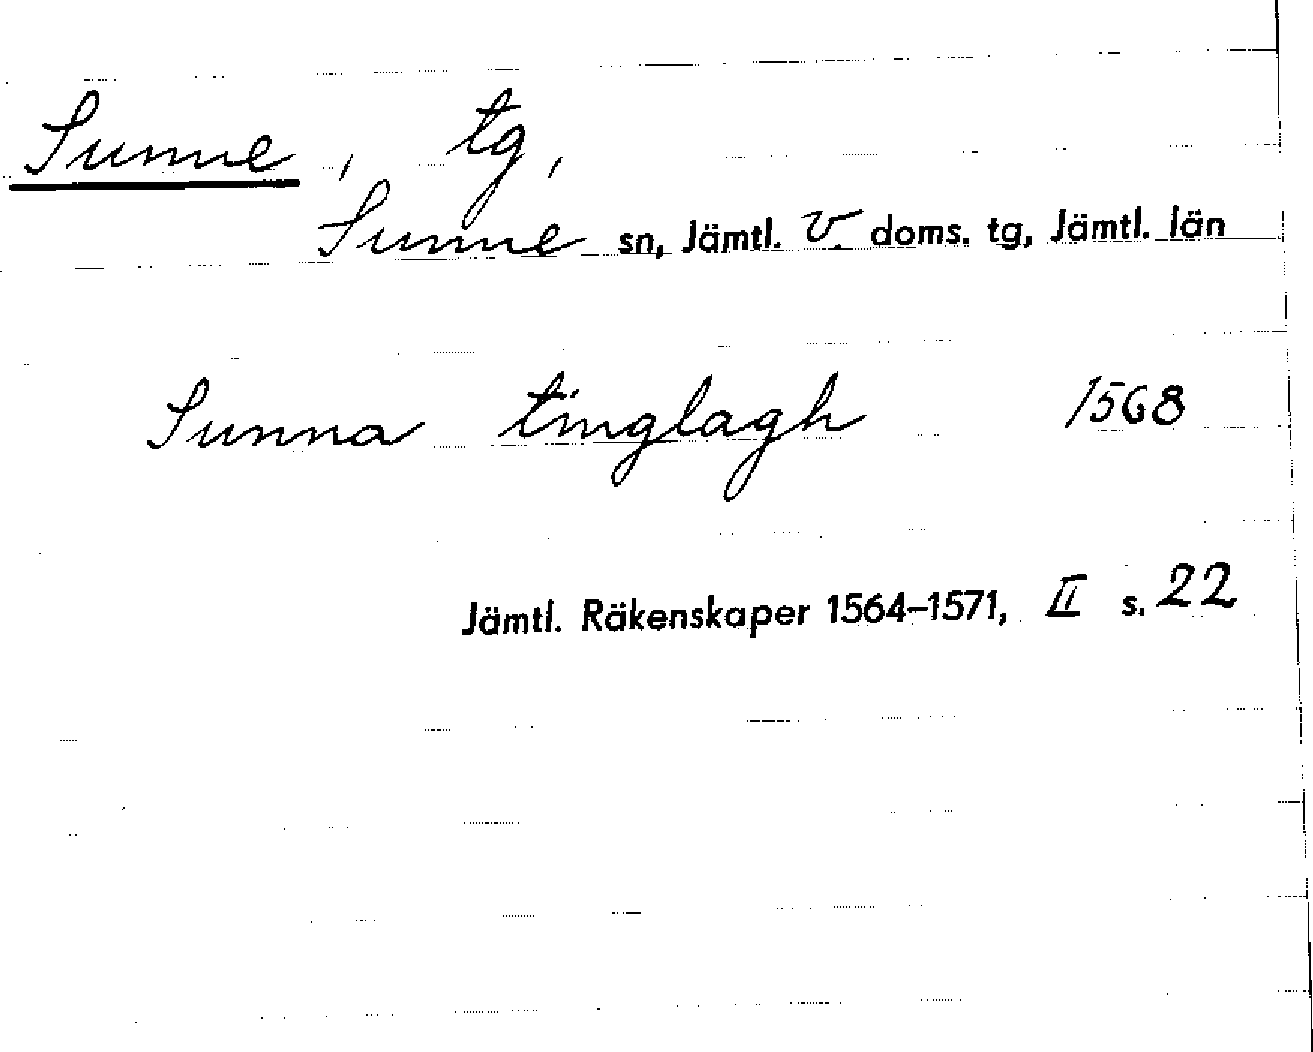 Sunne, tg,
Sunne sn, Jämtl. V. doms. tg, Jämtl. län
Sunna tinglagh 1568
Jämtl. Räkenskaper 1564–1571, II s. 22